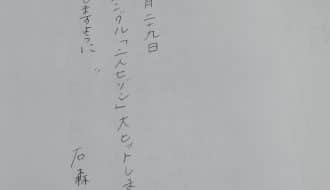 月二十九日
ングル「二人セゾン」大ヒットしま
しますように
石森